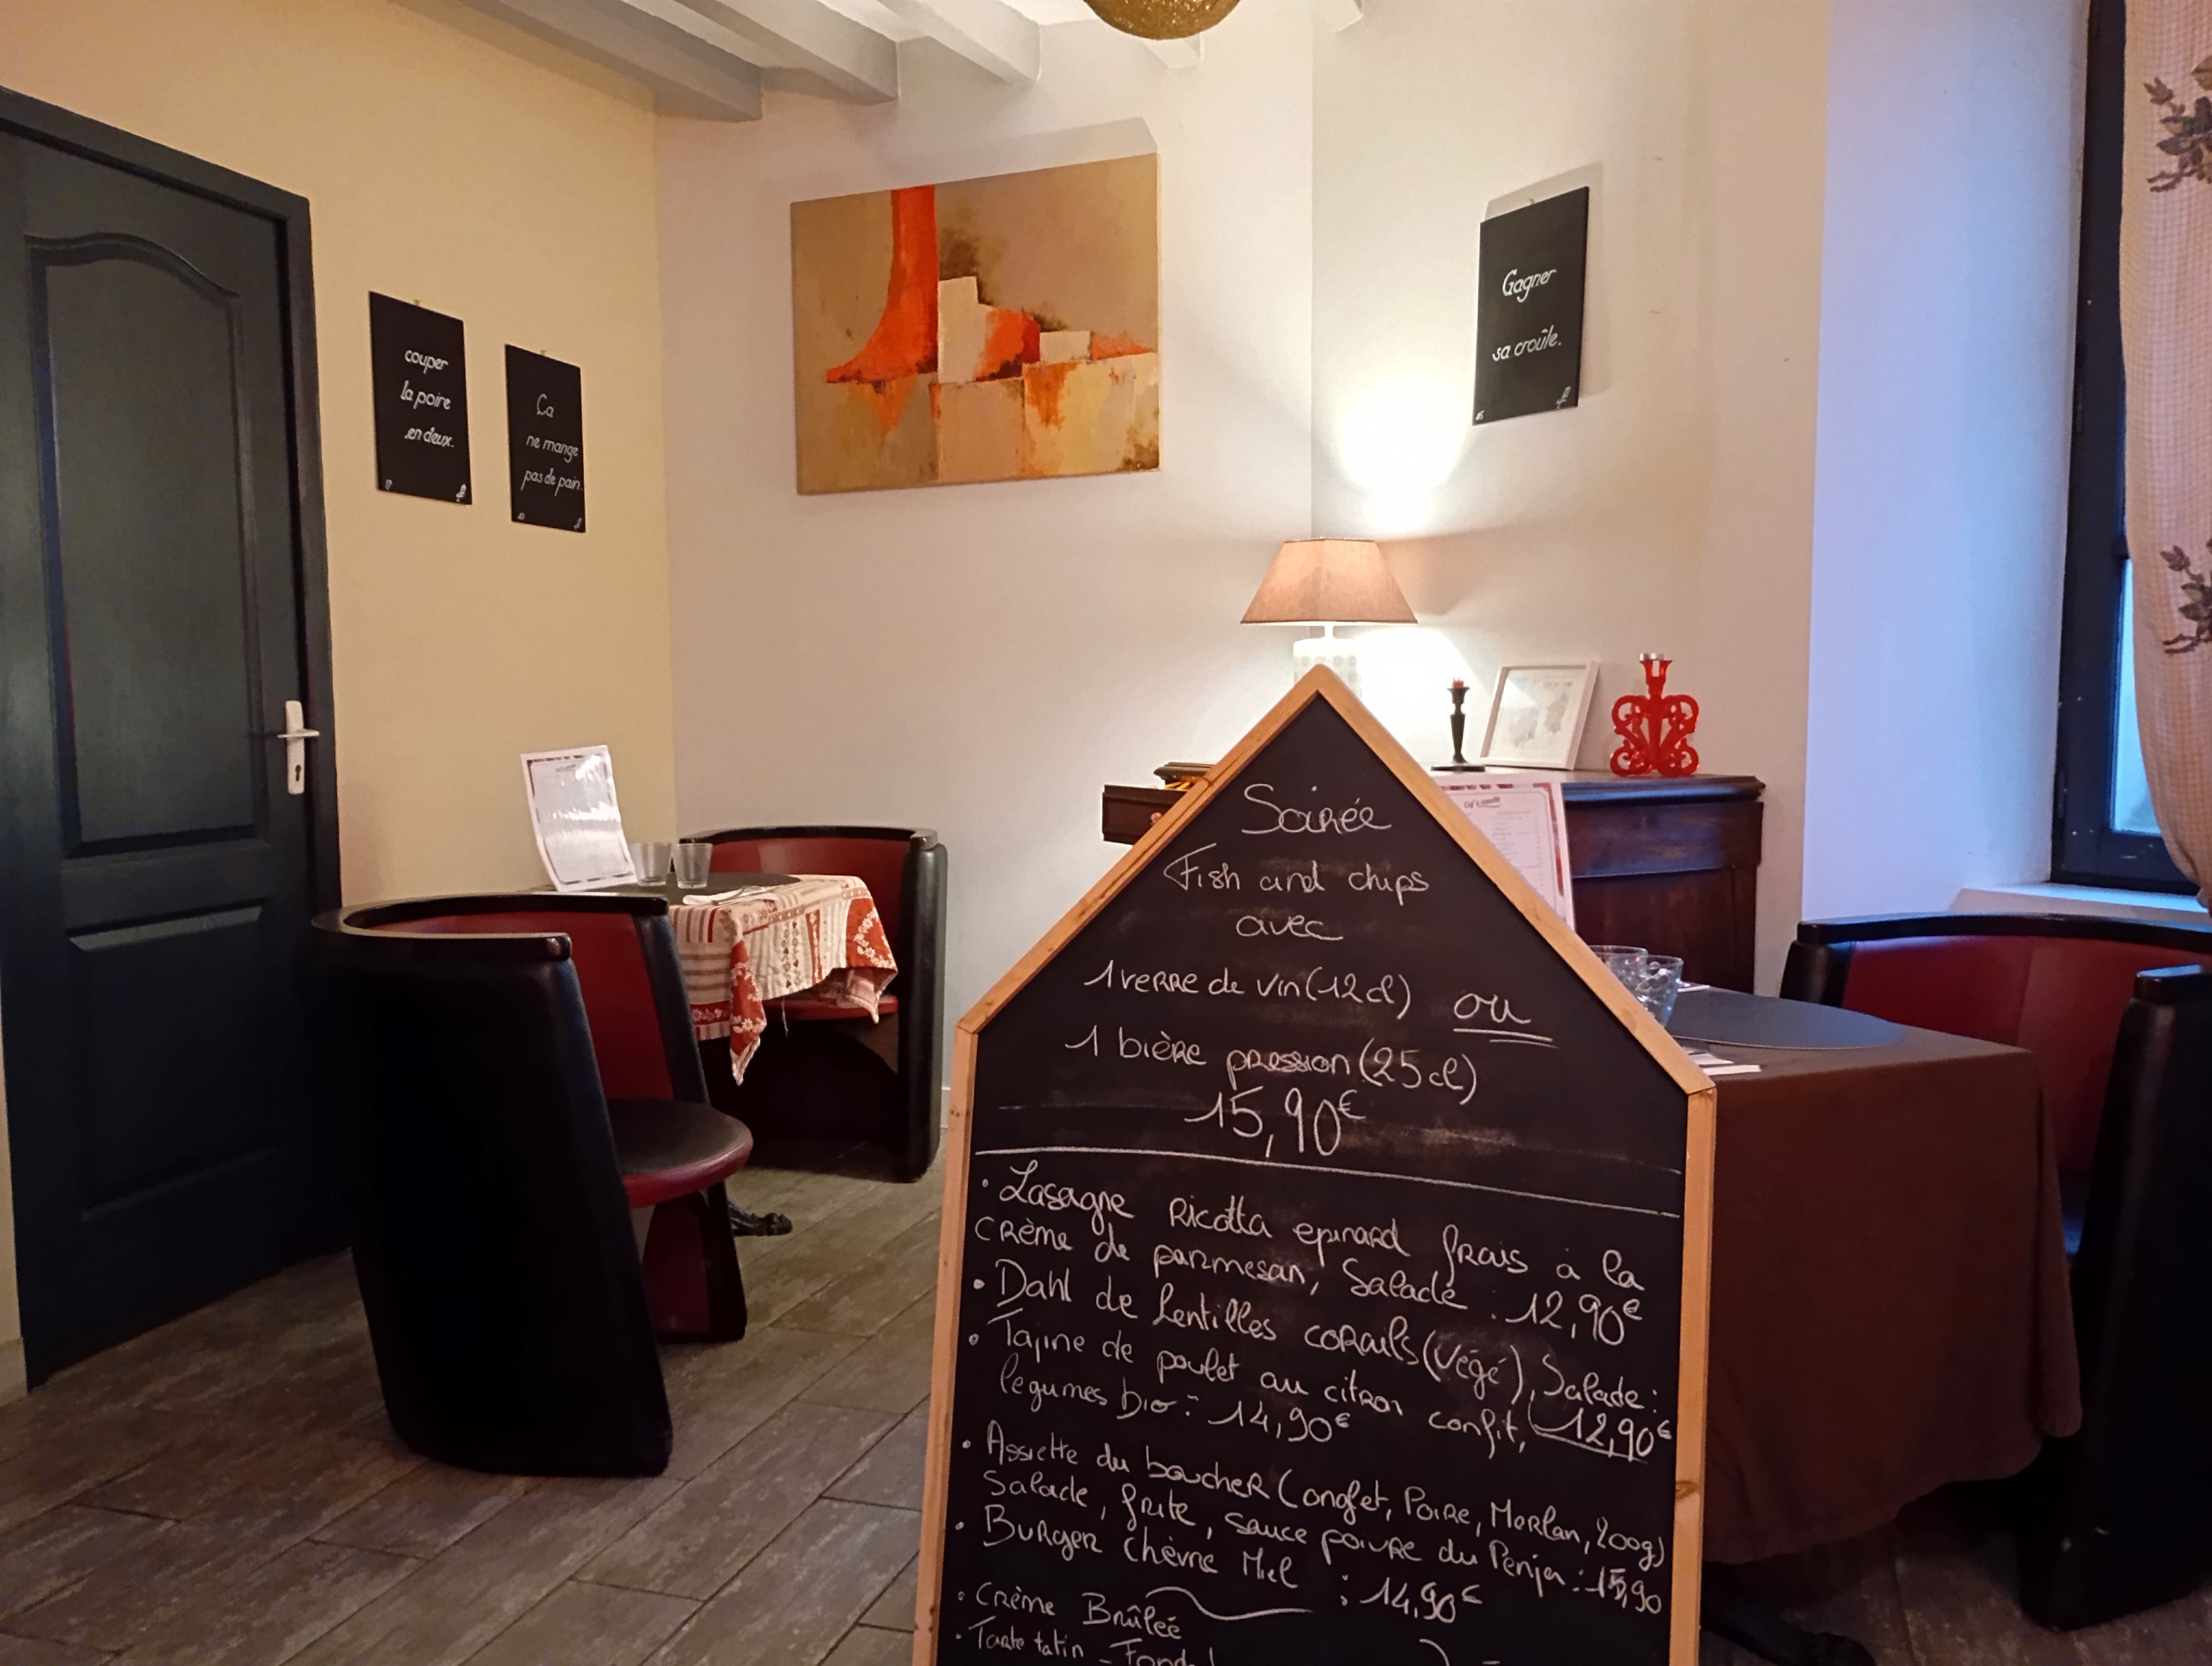 couper
la poire
en deux.
Ca
ne mange
pas de pain.
Gagner
sa croûte.
Soirée
Fish and chips
avec
1 verre de vin (12cl) ou
1 bière pression (25cl)
15,90€
• Lasagne Ricotta epinard frais à la
crème de parmesan, Salade : 12,90€
• Dahl de lentilles corails (végé), Salade :
12,90€
• Tajine de poulet au citron confit,
legumes bio : 14,90€
• Assiette du boucher (onglet, Poire, Merlan, 200g)
Salade, frite, sauce poivre du Penja : 15,90
• Burger chèvre Miel : 14,90€
• Crème Brûleé
• Tarte tatin -